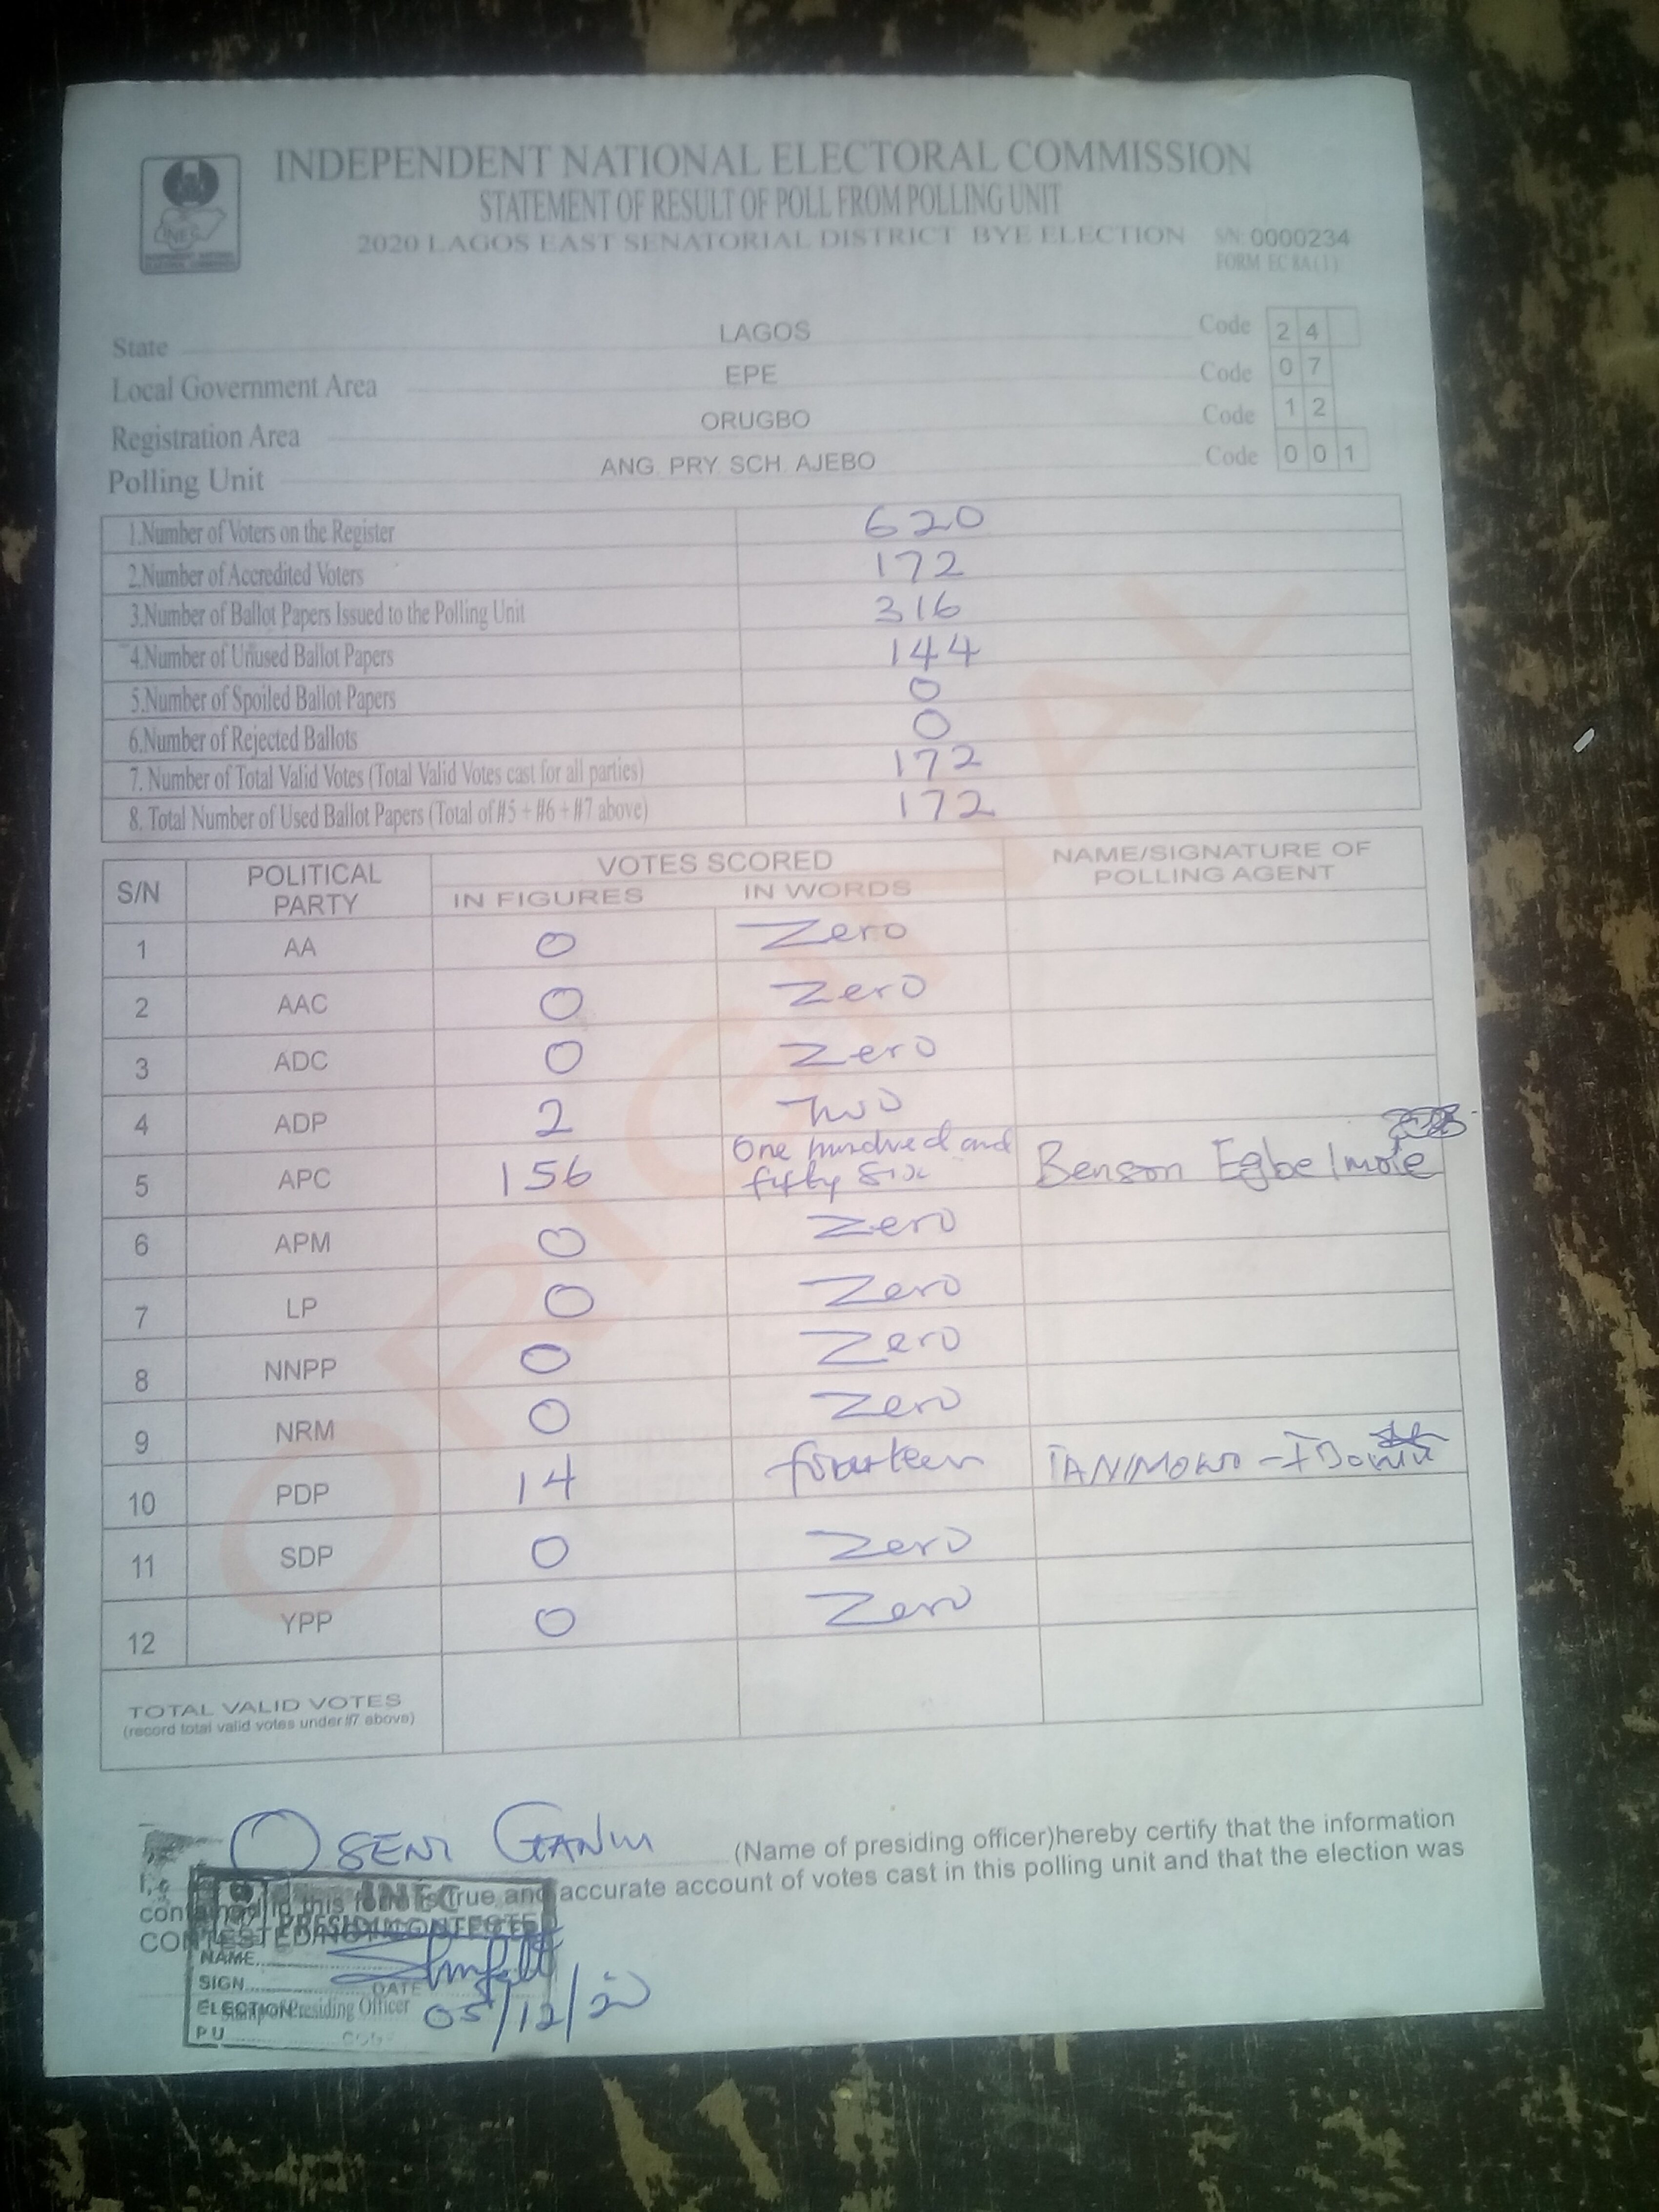 INDEPENDENT NATIONAL ELECTORAL COMMISSION
STATEMENT OF RESULT OF POLL FROM POLLING UNIT
2020 LAGOS EAST SENATORIAL DISTRICT BYE ELECTION S/N: 0000234
FORM EC 8A(1)
INEC
State LAGOS Code 2 4
Local Government Area EPE Code 0 7
Registration Area ORUGBO Code 1 2
Polling Unit ANG. PRY. SCH. AJEBO Code 0 0 1
1.Number of Voters on the Register 620
2.Number of Accredited Voters 172
3.Number of Ballot Papers Issued to the Polling Unit 316
4.Number of Unused Ballot Papers 144
5.Number of Spoiled Ballot Papers 0
6.Number of Rejected Ballots 0
7. Number of Total Valid Votes (Total Valid Votes cast for all parties) 172
8. Total Number of Used Ballot Papers (Total of #5 + #6 + #7 above) 172
S/N POLITICAL PARTY VOTES SCORED NAME/SIGNATURE OF POLLING AGENT
IN FIGURES IN WORDS
1 AA 0 Zero
2 AAC 0 Zero
3 ADC 0 Zero
4 ADP 2 Two
5 APC 156 One hundred and fifty six Benson Egbe
6 APM 0 Zero
7 LP 0 Zero
8 NNPP 0 Zero
9 NRM 0 Zero
10 PDP 14 fourteen
11 SDP 0 Zero
12 YPP 0 Zero
TOTAL VALID VOTES
(record total valid votes under #7 above)
ORIGINAL
I, OSENI GANIU (Name of presiding officer)hereby certify that the information
contained in this form is true and accurate account of votes cast in this polling unit and that the election was
CONTESTED/NOT CONTESTED
INEC
NAME
SIGN DATE
ELECTION Presiding Officer 05/12/20
PU